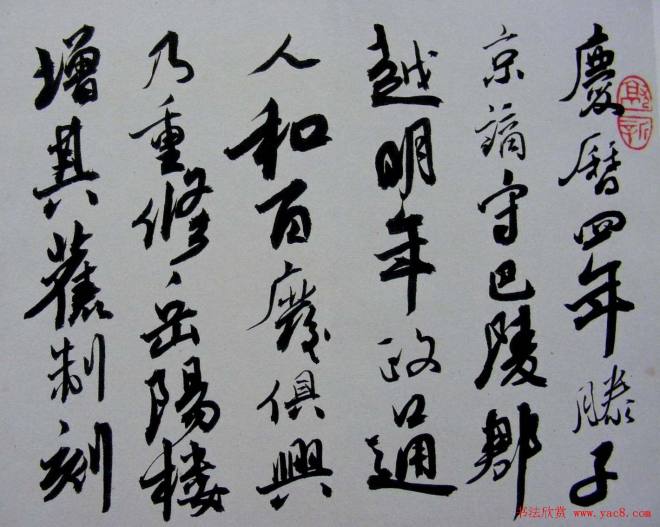 慶曆四年滕子
京謫守巴陵郡
越明年政通
人和百廢俱興
乃重修岳陽樓
增其舊制刻
书法欣赏 www.yac8.com